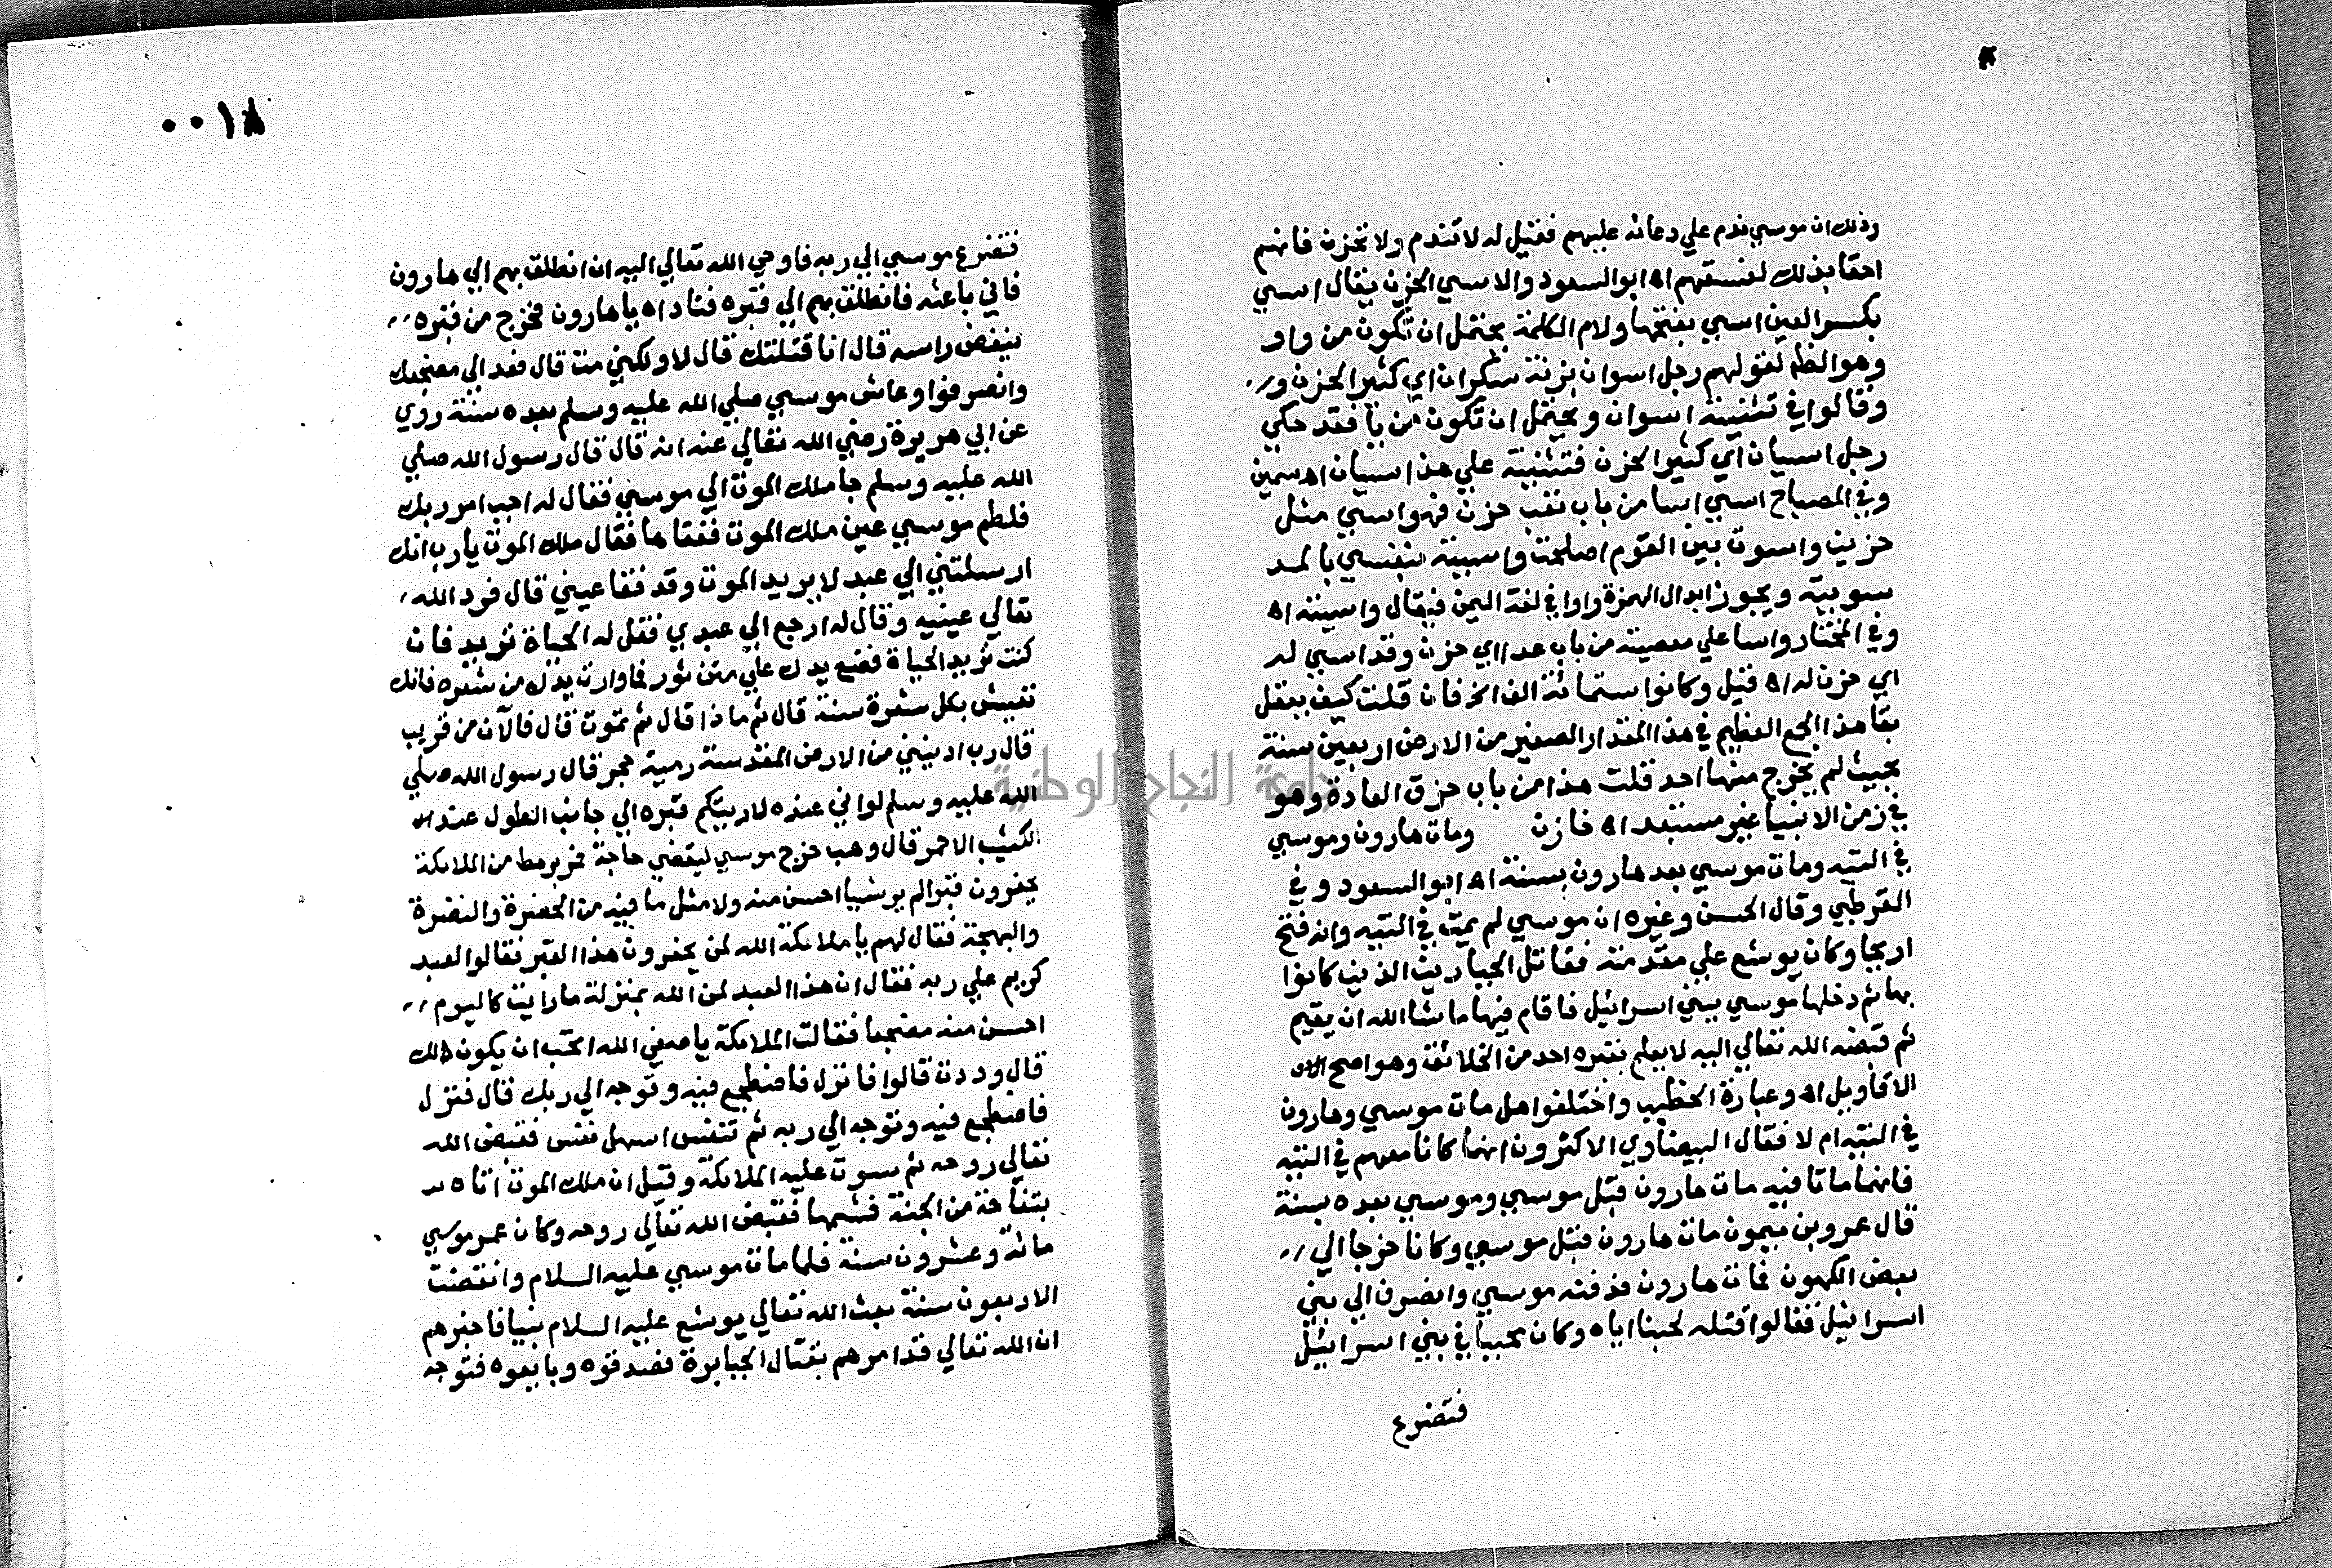 وذلك ان موسي ندم علي دعائه عليهم فقيل له لا تندم ولا تحزن فانهم
احقا بذلك لفسقهم اه ابو السعود والاسي الحزن يقال اسي
بكسر العين اسي بفتحها ولام الكلمة يحتمل ان تكون من واو
وهو الظ لقولهم رجل اسوان بزنة سكران اي كثير الحزن و
وقالوا في تثنية اسوان ويحتمل ان تكون من يا فقد حكي
رجل اسيان اي كثير الحزن فتثنية علي هذا اسيان اه سمين
وفي المصباح اسي اسا من باب تعب حزن فهو اسي مثل
حزين واسوت بين القوم اصلحت واسيته بنفسي بالمد
سويته ويجوز ابدال الهمزة واوا في لغة اليمن فيقال واسيته اه
وفي المختار واسا علي مصيبة من باب عدا اي حزن وقد اسي له
اي حزن له اه قيل وكانوا ستمائة الف الخ فان قلت كيف يعقل
بقا هذا الجمع العظيم في هذا المقدار الصغير من الارض اربعين سنة
بحيث لم يخرج منها احد قلت هذا من باب خرق العادة وهو
في زمن الانبيا غير مستبعد اه خازن ومات هارون وموسي
في التيه ومات موسي بعد هارون بسنة اه ابو السعود وفي
القرطبي وقال الحسن وغيره ان موسي لم يمت في التيه وانه فتح
اريحا وكان يوشع علي مقدمته فقاتل الجبارين الذين كانوا
بها ثم دخلها موسي ببني اسرائيل فاقام فيها ما شا الله ان يقيم
ثم قبضه الله تعالي اليه لا يعلم بقبره احد من الخلائق وهو اصح الا
الاقاويل اه وعبارة الخطيب واختلفوا هل مات موسي وهارون
في التيه ام لا فقال البيضاوي الاكثرون انهما كانا معهم في التيه
فانهما ماتا فيه مات هارون قبل موسي وموسي بعده بسنة
قال عمرو بن ميمون مات هارون قبل موسي وكانا خرجا الي
بعض الكهون فمات هارون فدفنه موسي وانصرف الي بني
اسرائيل فقالوا قتله لحبنا اياه وكان محببا في بني اسرائيل
فتضرع
٠٠١٨
فتضرع موسي الي ربه فاوحي الله تعالي اليه ان انطلق بهم الي هارون
فاني باعثه فانطلق بهم الي قبره فناداه يا هارون فخرج من قبره
ينفض راسه قال انا قتلتك قال لا ولكني مت قال فعد الي مضجعك
وانصرفوا وعاش موسي صلي الله عليه وسلم بعده سنة روي
عن ابي هريرة رضي الله تعالي عنه انه قال قال رسول الله صلي
الله عليه وسلم جا ملك الموت الي موسي فقال له اجب امر ربك
فلطم موسي عين ملك الموت ففقاها فقال ملك الموت يا رب انك
ارسلتني الي عبد لا يريد الموت وقد فقا عيني قال فرد الله
تعالي عينيه وقال له ارجع الي عبدي فقل له الحياة تريد فان
كنت تريد الحياة فضع يدك علي متن ثور فما وارت يدك من شعره فانك
تعيش بكل شعرة سنة قال ثم ماذا قال ثم تموت قال فالآن من قريب
قال رب ادنيني من الارض المقدسة رمية حجر قال رسول الله صلي
الله عليه وسلم لو اني عنده لاريتكم قبره الي جانب الطول عند الـ
الكثيب الاحمر قال وهب خرج موسي ليقضي حاجة فمر برهط من الملائكة
يحفرون قبرا لم ير شيا احسن منه ولا مثل ما فيه من الخضرة والنضرة
والبهجة فقال لهم يا ملائكة الله لمن يحفرون هذا القبر فقالوا لعبد
كريم علي ربه فقال ان هذا العبد لمن الله بمنزلة ما رايت كاليوم
احسن منه مضجعا فقالت الملائكة يا صفي الله اتحب ان يكون ذلك
قال وددت قالوا فانزل فاضطجع فيه وتوجه الي ربك قال فنزل
فاضطجع فيه وتوجه الي ربه ثم تنفس اسهل نفس فقبض الله
تعالي روحه ثم سوت عليه الملائكة وقيل ان ملك الموت اتاه
بتفاحة من الجنة فشمها فقبض الله تعالي روحه وكان عمر موسي
مائة وعشرون سنة فلما مات موسي عليه السلام وانقضت
الاربعون سنة بعث الله تعالي يوشع عليه السلام نبيا فاخبرهم
ان الله تعالي قد امرهم بقتال الجبابرة فصدقوه وبايعوه فتوجه
جامعة النجاح الوطنية